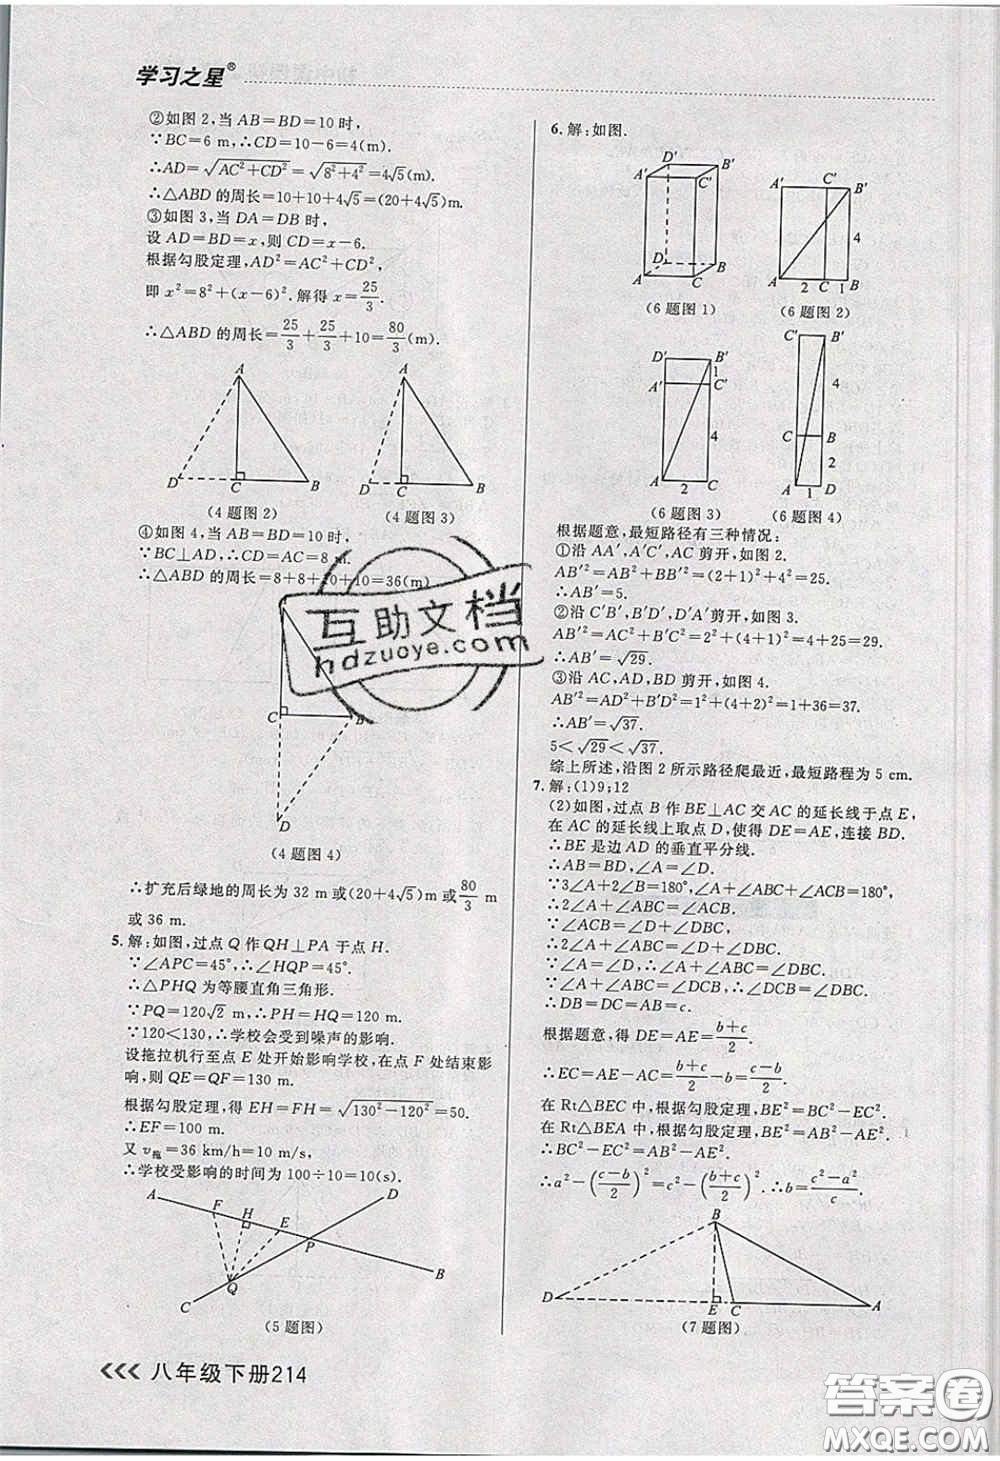 学习之星®
②如图 2,当 AB=BD=10 时,
∵BC=6 m,∴CD=10-6=4(m).
∴AD=√(AC²+CD²)=√(8²+4²)=4√5(m).
∴△ABD 的周长=10+10+4√5=(20+4√5)m.
③如图 3,当 DA=DB 时,
设 AD=BD=x,则 CD=x-6.
根据勾股定理,AD²=AC²+CD²,
即 x²=8²+(x-6)².解得 x=25/3.
∴△ABD 的周长=25/3+25/3+10=80/3(m).
A
D
C
B
(4 题图 2)
A
D
C
B
(4 题图 3)
④如图 4,当 AB=BD=10 时,
∵BC⊥AD,∴CD=AC=8 m.
∴△ABD 的周长=8+8+10+10=36(m)
C
B
D
(4 题图 4)
∴扩充后绿地的周长为 32 m 或(20+4√5)m 或80/3 m
或 36 m.
5. 解:如图,过点 Q 作 QH⊥PA 于点 H.
∵∠APC=45°,∴∠HQP=45°.
∴△PHQ 为等腰直角三角形.
∵PQ=120√2 m,∴PH=HQ=120 m.
∵120<130,∴学校会受到噪声的影响.
设拖拉机行至点 E 处开始影响学校,在点 F 处结束影
响,则 QE=QF=130 m.
根据勾股定理,得 EH=FH=√(130²-120²)=50.
∴EF=100 m.
又 v拖=36 km/h=10 m/s,
∴学校受影响的时间为 100÷10=10(s).
A
F
H
E
D
P
B
Q
C
(5 题图)
6. 解:如图.
D′
B′
A′
C′
D
B
A
C
(6 题图 1)
A′
C′
B′
4
A
2
C
1
B
(6 题图 2)
D′
B′
1
A′
C′
4
A
2
C
(6 题图 3)
C′
B′
4
C
B
2
A
1
D
(6 题图 4)
根据题意,最短路径有三种情况:
①沿 AA′,A′C′,AC 剪开,如图 2.
AB′²=AB²+BB′²=(2+1)²+4²=25.
∴AB′=5.
②沿 C′B′,B′D′,D′A′剪开,如图 3.
AB′²=AC²+B′C²=2²+(4+1)²=4+25=29.
∴AB′=√29.
③沿 AC,AD,BD 剪开,如图 4.
AB′²=AD²+B′D²=1²+(4+2)²=1+36=37.
∴AB′=√37.
5<√29<√37.
综上所述,沿图 2 所示路径爬最近,最短路程为 5 cm.
7. 解:(1)9;12
(2)如图,过点 B 作 BE⊥AC 交 AC 的延长线于点 E,
在 AC 的延长线上取点 D,使得 DE=AE,连接 BD.
∴BE 是边 AD 的垂直平分线.
∴AB=BD,∠A=∠D.
∵3∠A+2∠B=180°,∠A+∠ABC+∠ACB=180°,
∴2∠A+∠ABC=∠ACB.
∵∠ACB=∠D+∠DBC,
∴2∠A+∠ABC=∠D+∠DBC.
∵∠A=∠D,∴∠A+∠ABC=∠DBC.
∵∠A+∠ABC=∠DCB,∴∠DCB=∠DBC.
∴DB=DC=AB=c.
根据题意,得 DE=AE=(b+c)/2.
∴EC=AE-AC=(b+c)/2-b=(c-b)/2.
在 Rt△BEC 中,根据勾股定理,BE²=BC²-EC².
在 Rt△BEA 中,根据勾股定理,BE²=AB²-AE².
∴BC²-EC²=AB²-AE².
∴a²-((c-b)/2)²=c²-((b+c)/2)².∴b=(c²-a²)/c.
B
D
E
C
A
(7 题图)
八年级下册214
互助文档
hdzuoye.com
答案圈
MXQE.COM